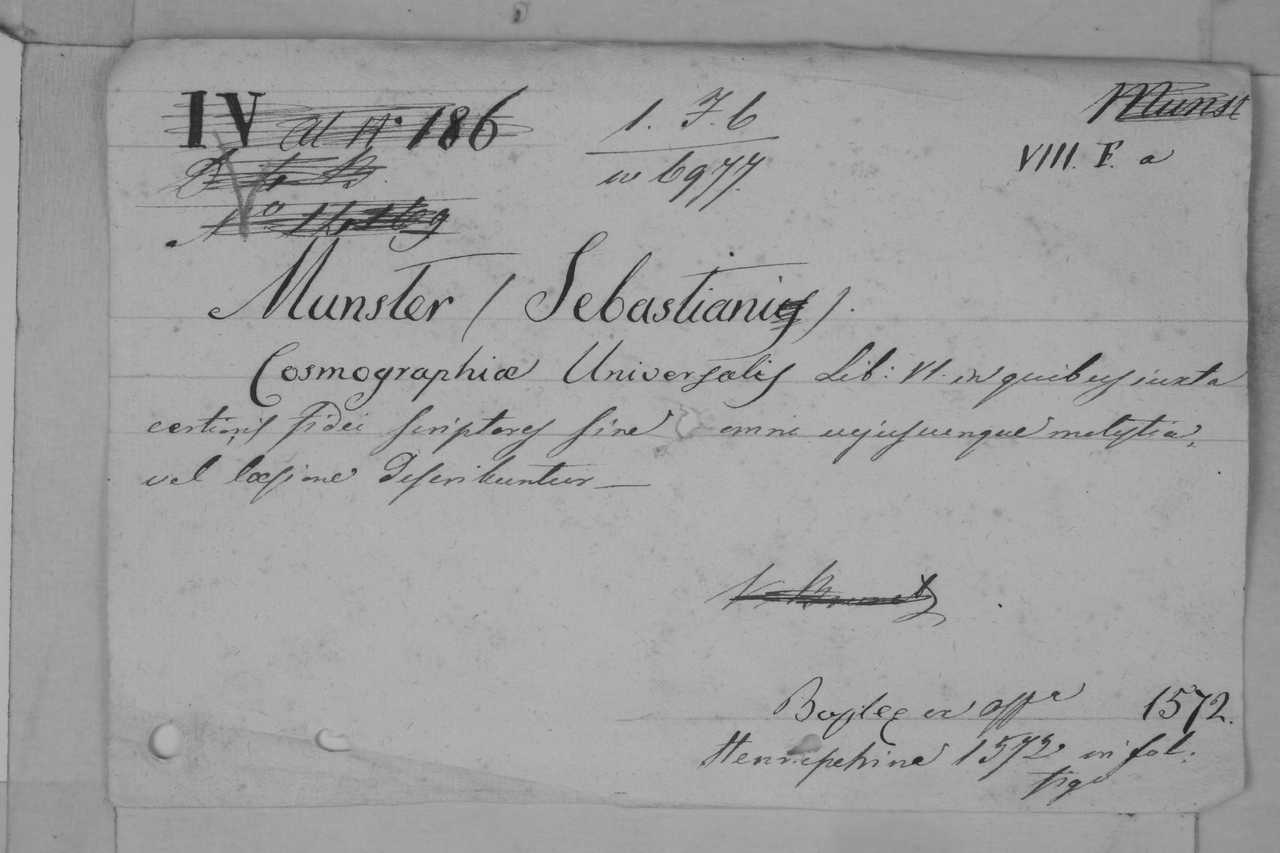 IV 186
1. F. 6
in 6977.
Munst
VIII. F. a
Munster (Sebastiani).
Cosmographiæ Universalis Lib: VI. in quibus iuxta
certioris fidei scriptores sine omni cujuscunque molestia,
vel læsione describuntur —
Basileæ ex offa 1572.
Henricpetrina 1572 in fol.
figs